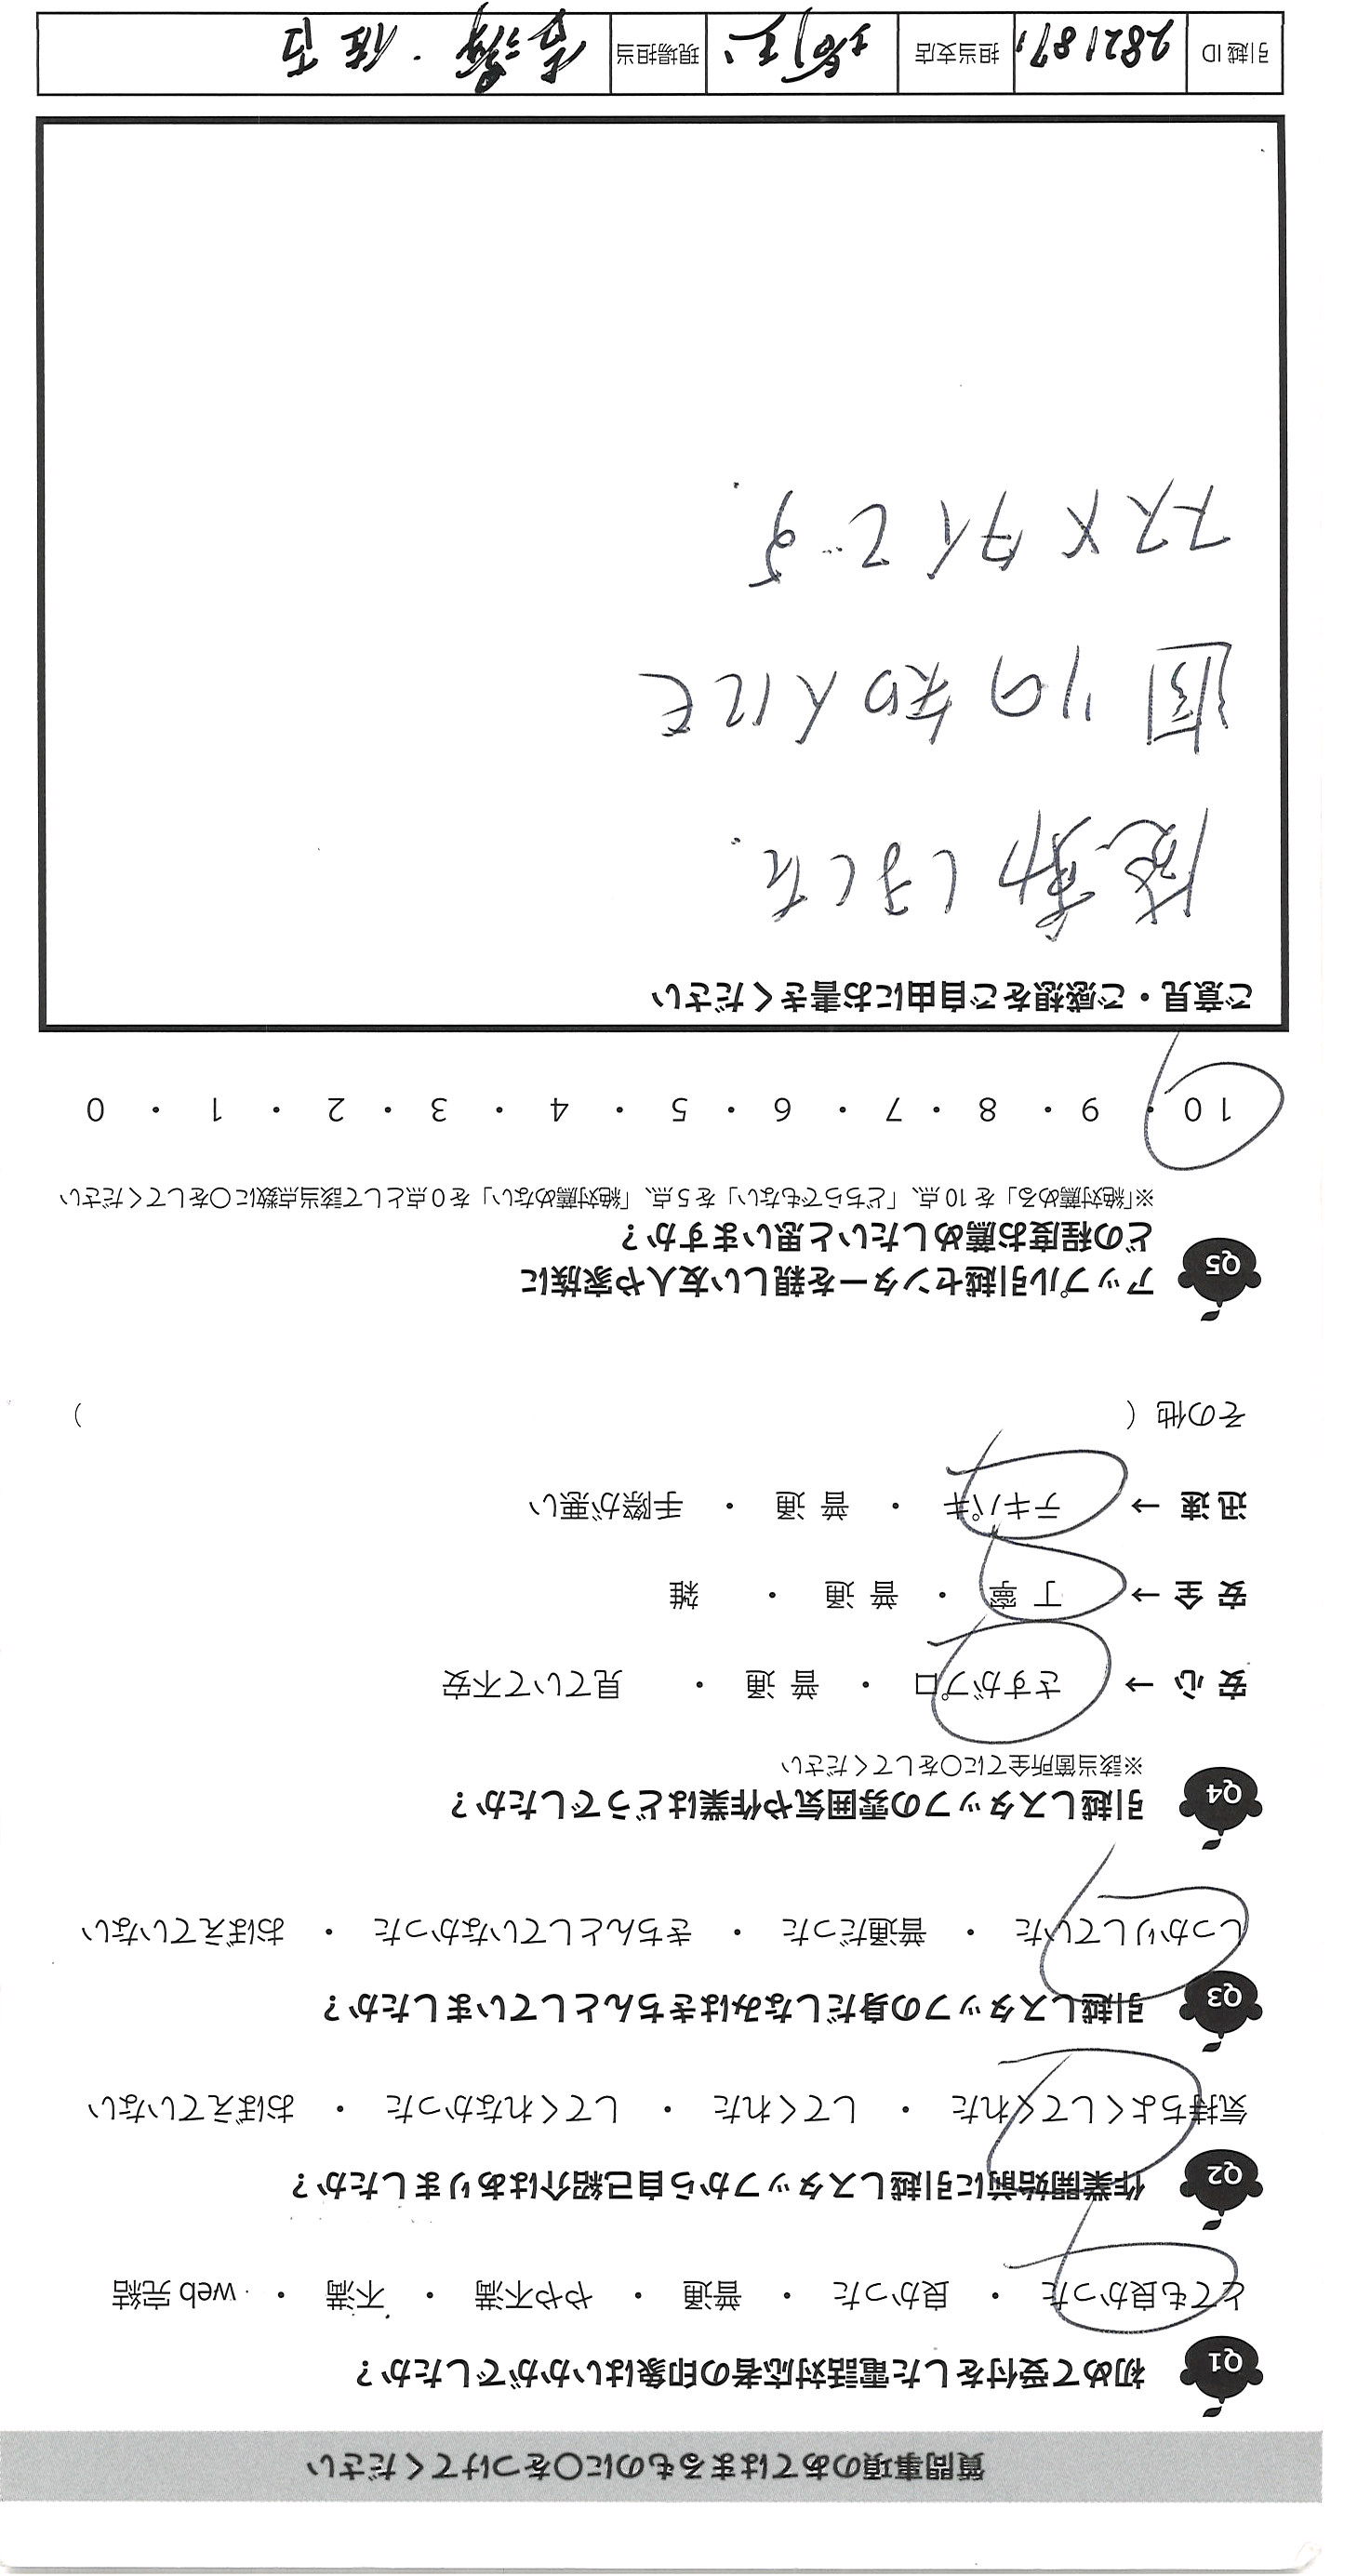 質問事項のあてはまるものに〇をつけてください
Q1 初めて受付をした電話対応者の印象はいかがでしたか？
とても良かった ・ 良かった ・ 普通 ・ やや不満 ・ 不満 ・ web 完結
Q2 作業開始前に引越しスタッフから自己紹介はありましたか？
気持ちよくしてくれた ・ してくれた ・ してくれなかった ・ おぼえていない
Q3 引越しスタッフの身だしなみはきちんとしていましたか？
しっかりしていた ・ 普通だった ・ きちんとしていなかった ・ おぼえていない
Q4 引越しスタッフの雰囲気や作業はどうでしたか？
※該当箇所全てに〇をしてください
安 心 → さすがプロ ・ 普 通 ・ 見ていて不安
安 全 → 丁 寧 ・ 普 通 ・ 雑
迅 速 → テキパキ ・ 普 通 ・ 手際が悪い
その他（ ）
Q5 アップル引越センターを親しい友人や家族に
どの程度お薦めしたいと思いますか？
※「絶対薦める」を 10 点、「どちらでもない」を 5 点、「絶対薦めない」を 0 点として該当点数に〇をしてください
10 ・ 9 ・ 8 ・ 7 ・ 6 ・ 5 ・ 4 ・ 3 ・ 2 ・ 1 ・ 0
ご意見・ご感想をご自由にお書きください
感動しました.
周りの知人にも
ススメタイです.
引越 ID 担当支店 埼玉 現場担当